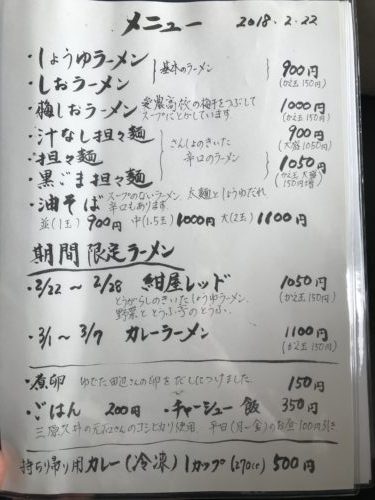 メニュー 2018.2.22
・しょうゆラーメン
・しおラーメン
基本のラーメン 900円
(かえ玉150円)
・梅しおラーメン 愛農高校の梅干をつぶして
スープにとかしています 1000円
(かえ玉150円)
・汁なし担々麺 900円
(大盛1050円)
・担々麺
・黒ごま担々麺
さんしょのきいた
辛口のラーメン 1050円
(かえ玉 大盛
150円増)
・油そば スープのないラーメン 太麺としょうゆだれ
辛口もあります
並(1玉) 900円 中(1.5玉) 1000円 大(2玉) 1100円
期間限定ラーメン
・2/22 〜 2/28 紺屋レッド 1050円
(かえ玉150円)
とうがらしのきいたしょうゆラーメン
野菜ととうふ
・3/1 〜 3/7 カレーラーメン 1100円
(かえ玉150円)
・煮卵 ゆでた田辺さんの卵をだしにつけました 150円
・ごはん 200円 ・チャーシュー飯 350円
コシヒカリ使用 平日(月〜金)のお昼100円引き
持ち帰り用カレー(冷凍) 1カップ(270cc) 500円